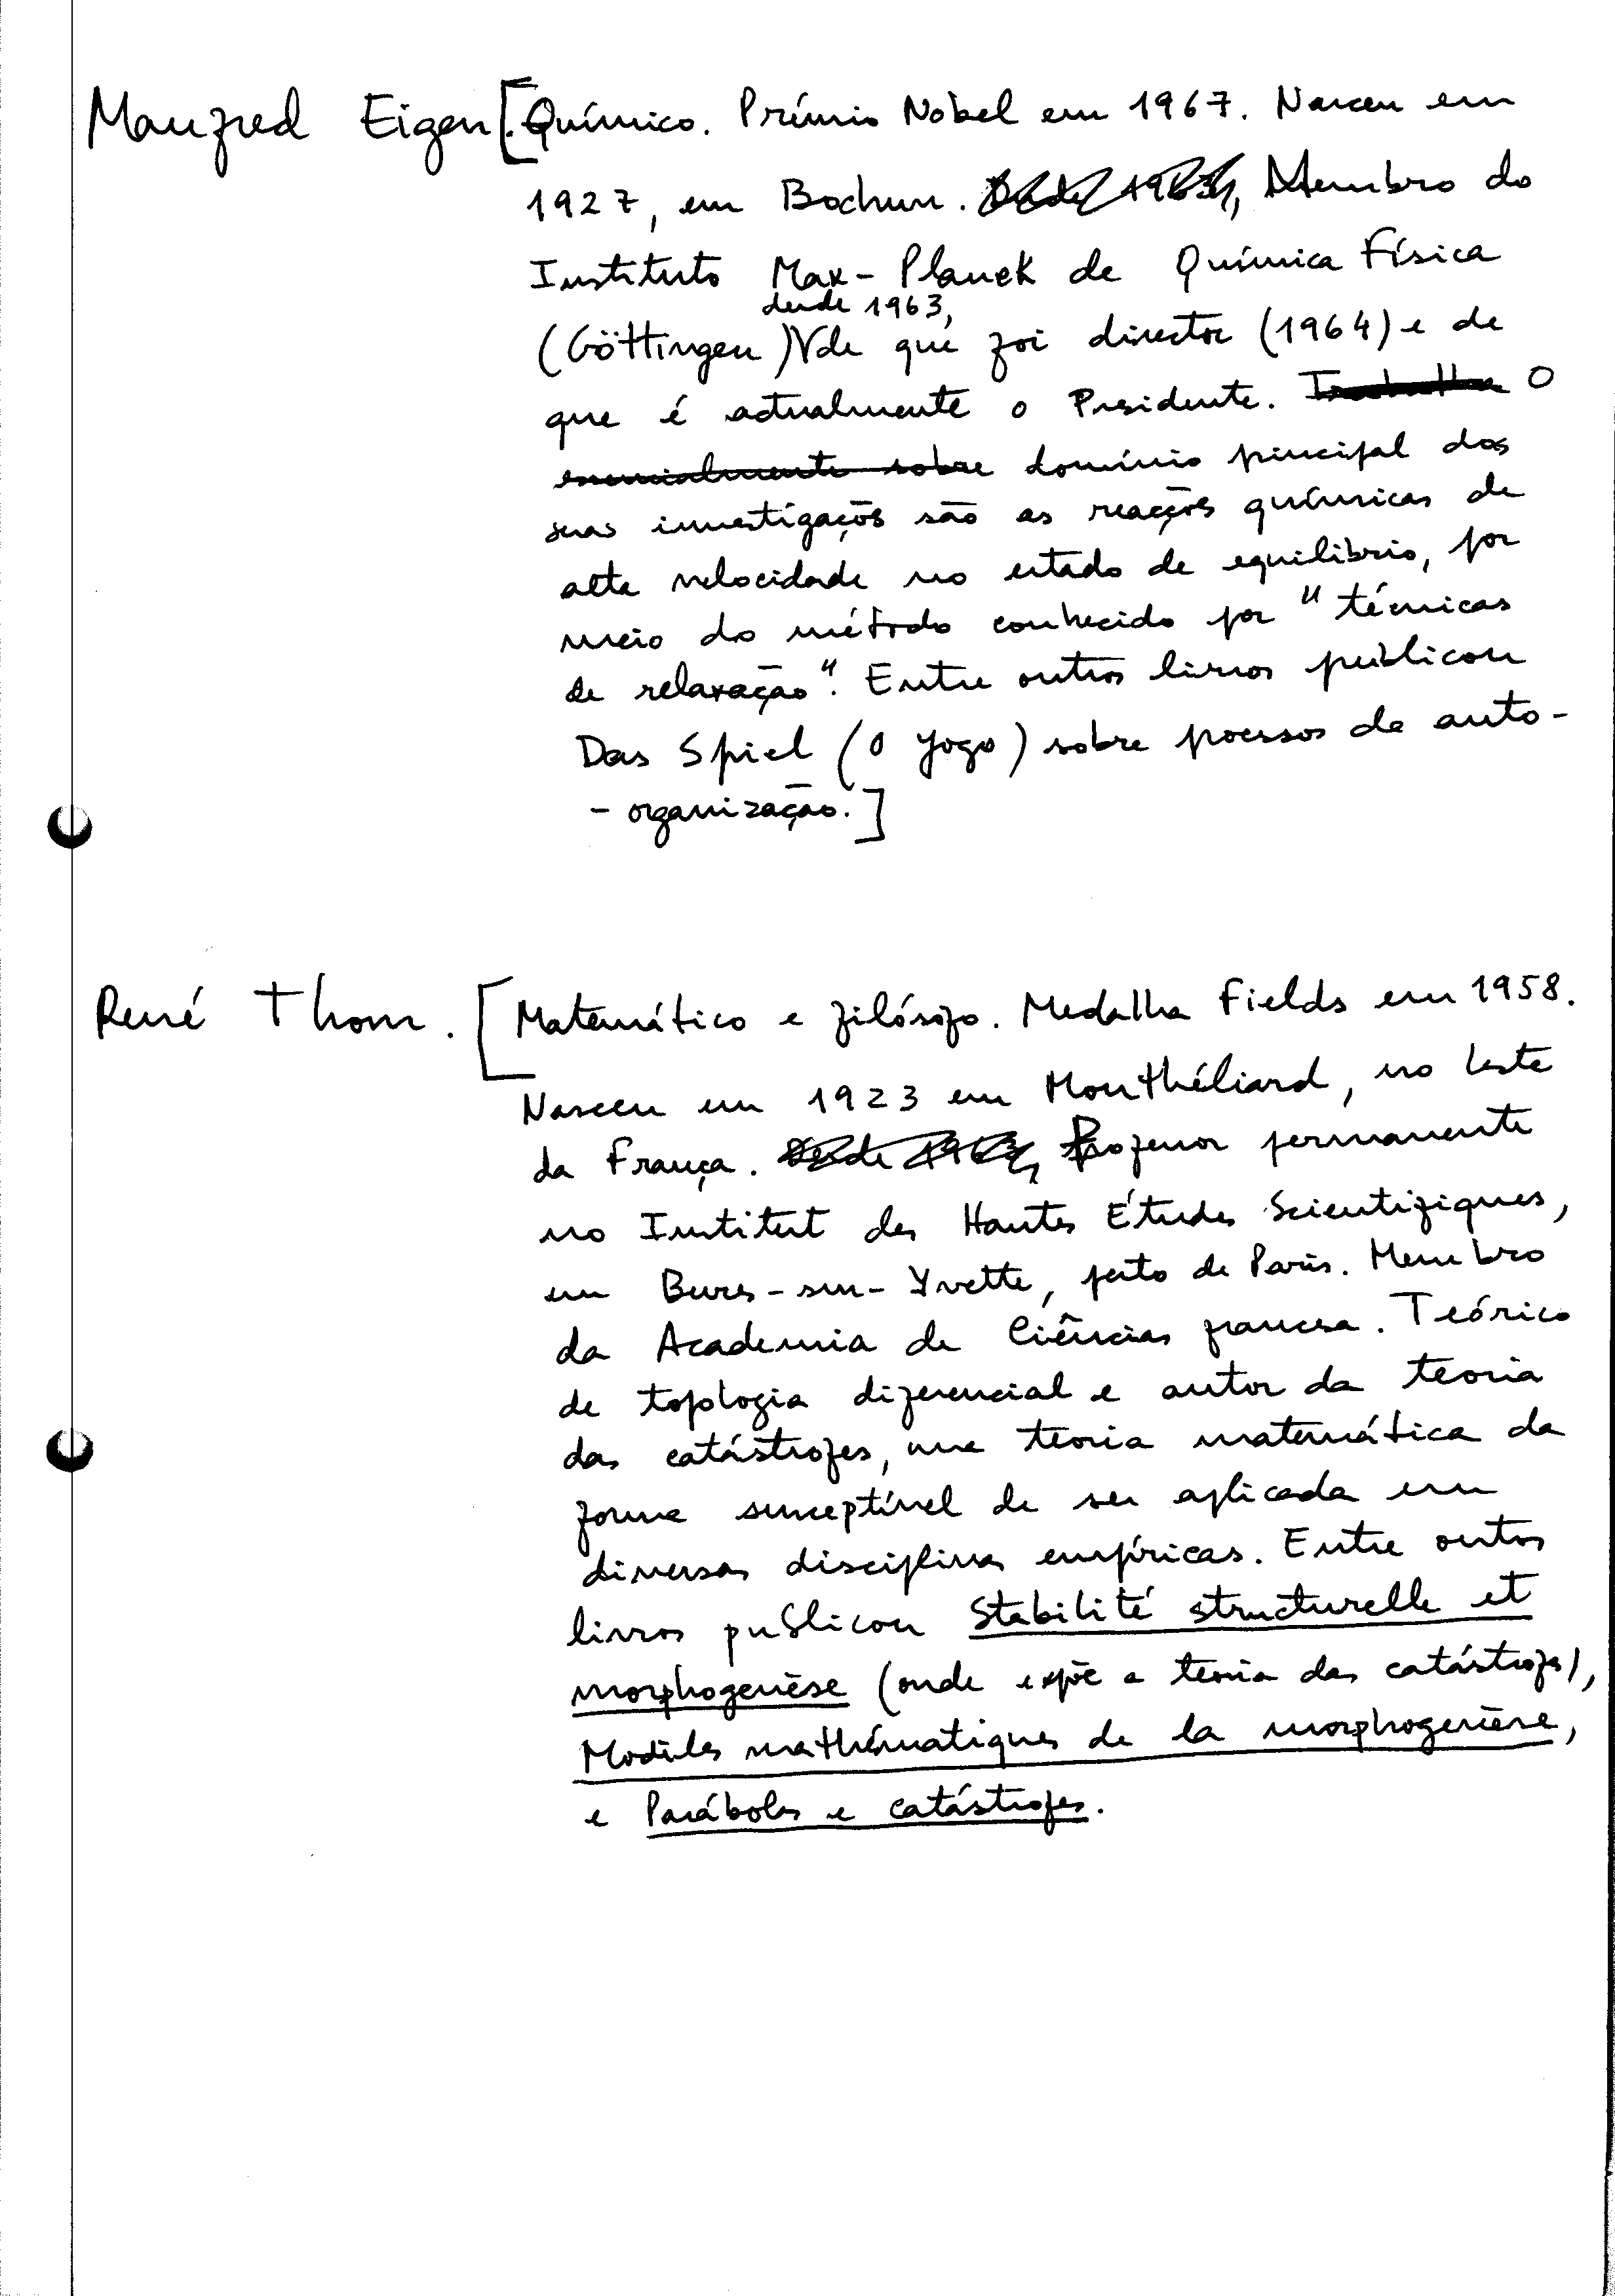 Manfred Eigen [. Químico. Prémio Nobel em 1967. Nasceu em
1927, em Bochum. Desde 1963, Membro do
Instituto Max-Planck de Química Física
desde 1963,
(Göttingen) V de que foi director (1964) e de
que é actualmente o Presidente. Trabalha O
essencialmente sobre domínio principal das
suas investigações são as reacções químicas de
alta velocidade no estado de equilíbrio, por
meio do método conhecido por "técnicas
de relaxação". Entre outros livros publicou
Das Spiel (O Jogo) sobre processos de auto-
- organização.]
René Thom. [Matemático e filósofo. Medalha Fields em 1958.
Nasceu em 1923 em Monthéliard, no Leste
da França. Desde 1963, Professor permanente
no Institut des Hautes Études Scientifiques,
em Bures-sur-Yvette, perto de Paris. Membro
da Academia de Ciências francesa. Teórico
de topologia diferencial e autor da teoria
das catástrofes, uma teoria matemática da
forma susceptível de ser aplicada em
diversas disciplinas empíricas. Entre outros
livros publicou Stabilité structurelle et
morphogenèse (onde expõe a teoria das catástrofes),
Modèles mathématiques de la morphogenèse,
e Parábolas e catástrofes.